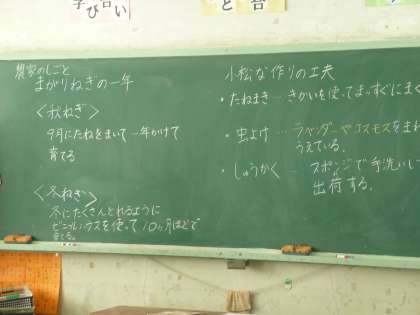 学び合い
と合
農家のしごと
まがりねぎの一年
＜秋ねぎ＞
9月にたねをまいて一年かけて
育てる
＜冬ねぎ＞
冬にたくさんとれるように
ビニールハウスを使って10ヶ月ほどで
育てる。
小松な作りの工夫
・たねまき…きかいを使ってまっすぐにまく
・虫よけ…ラベンダーやコスモスをまわ
うえている。
・しゅうかく…スポンジで手洗いし
出荷する。